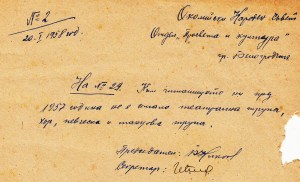 № 2
20.I.1958 год.
Околийски Народен Съвет
Отдел „Просвета и култура"
гр. Белоградчик
На № 29. Към читалището ни през
1957 година не е имало театрална трупа,
хор, певческа и танцова трупа.
Председател:
Секретар: